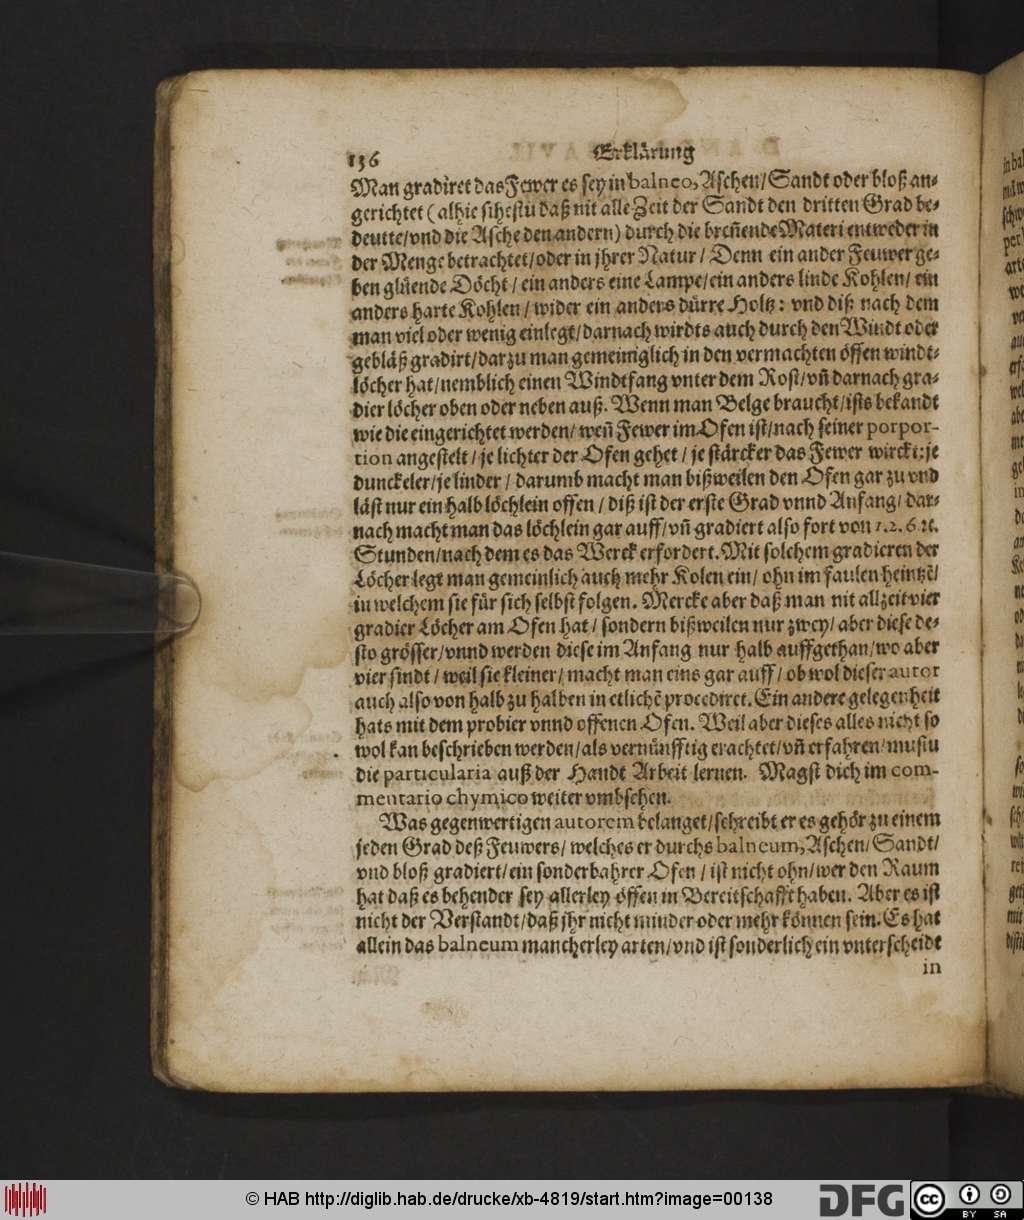 136 Erklärung
Man gradiret das Fewer es sey in balneo, Aschen/ Sandt oder bloß an-
gerichtet (alhie sihestu daß nit alle Zeit der Sandt den dritten Grad be-
deutte/ vnd die Asche den andern) durch die breñende Materi entweder in
der Menge betrachtet/ oder in jhrer Natur/ Denn ein ander Feuwer ge-
ben glüende Döcht/ ein anders eine Lampe/ ein anders linde Kohlen/ ein
anders harte Kohlen/ wider ein anders dürre Holtz: vnd diß nach dem
man viel oder wenig einlegt/ darnach wirdts auch durch den Windt oder
gebläß gradirt/ darzu man gemeiniglich in den vermachten öffen windt-
löcher hat/ nemblich einen Windtfang vnter dem Rost/ vñ darnach gra-
dier löcher oben oder neben auß. Wenn man Belge braucht/ ists bekandt
wie die eingerichtet werden/ weñ Fewer im Ofen ist/ nach seiner porpor-
tion angestelt/ je lichter der Ofen gehet/ je stärcker das Fewer wirckt: je
dunckeler/ je linder/ darumb macht man bißweilen den Ofen gar zu vnd
läst nur ein halb löchlein offen/ diß ist der erste Grad vnnd Anfang/ dar-
nach macht man das löchlein gar auff/ vñ gradiert also fort von 1. 2. 6. ꝛc.
Stunden/ nach dem es das Werck erfordert. Mit solchem gradieren der
Löcher legt man gemeinlich auch mehr Kolen ein/ ohn im faulen heintzē/
in welchem sie für sich selbst folgen. Mercke aber daß man nit allzeit vier
gradier Löcher am Ofen hat/ sondern bißweilen nur zwey/ aber diese de-
sto grösser/ vnnd werden diese im Anfang nur halb auffgethan/ wo aber
vier sindt/ weil sie kleiner/ macht man eins gar auff/ ob wol dieser autor
auch also von halb zu halben in etlichē procediret. Ein andere gelegenheit
hats mit dem probier vnnd offenen Ofen. Weil aber dieses alles nicht so
wol kan beschrieben werden/ als vernünfftig erachtet/ vñ erfahren/ mustu
die particularia auß der Handt Arbeit lernen. Magst dich im com-
mentario chymico weiter vmbsehen.
Was gegenwertigen autorem belanget/ schreibt er es gehör zu einem
jeden Grad deß Feuwers/ welches er durchs balneum, Aschen/ Sandt/
vnd bloß gradiert/ ein sonderbahrer Ofen/ ist nicht ohn/ wer den Raum
hat daß es behender sey allerley öffen in Bereitschafft haben. Aber es ist
nicht der Verstandt/ daß jhr nicht minder oder mehr können sein. Es hat
allein das balneum mancherley arten/ vnd ist sonderlich ein vnterscheidt
in
© HAB http://diglib.hab.de/drucke/xb-4819/start.htm?image=00138
DFG
cc BY SA